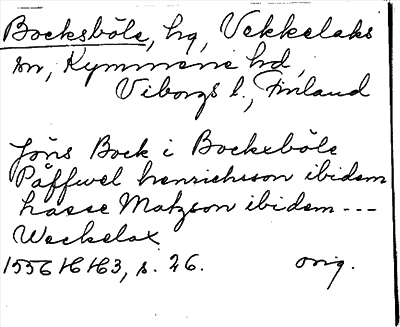 Bocksböle, hg, Vekkelaks
sn, Kymmene hd,
Viborgs l., Finland
Jöns Bock i Bockeböle
Påffwel henrichsson ibidem
hasse Matzson ibidem ---
Weckelax
1556 HH3, s. 26. orig.